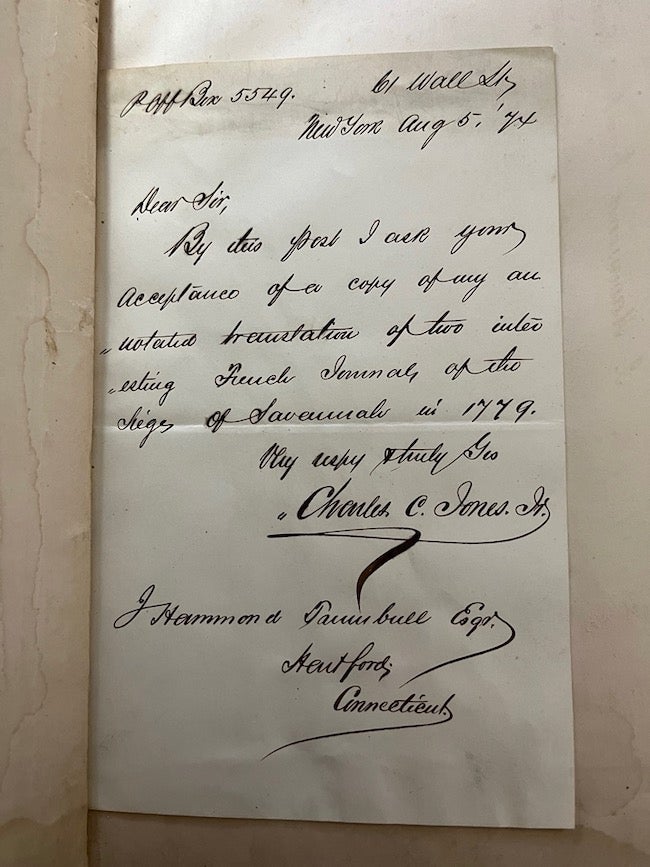 P Off Box 5549.
61 Wall St,
New York Aug 5, '74
Dear Sir,
By this post I ask your
acceptance of a copy of my an
"notated translation of two inter
"esting French Journals of the
Siege of Savannah in 1779.
Very respy & truly Yrs
" Charles C. Jones. Jr.
J Hammond Trumbull Esqr.
Hartford,
Connecticut.